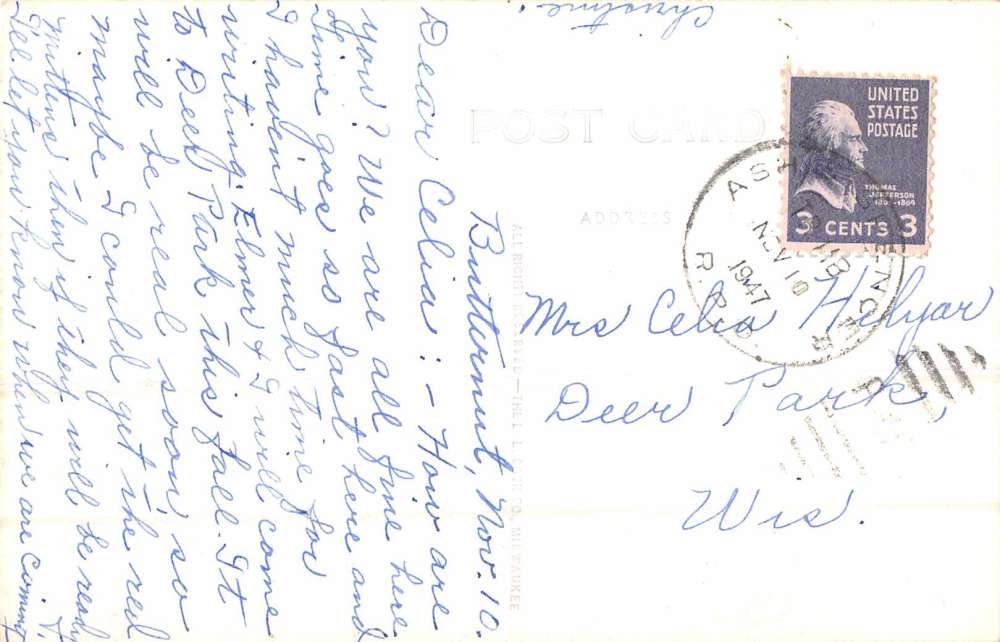 Butternut, Nov. 10.
Dear Celia: - How are
you? We are all fine here
Time goes so fast here and
I havent much time for
writing. Elmer & I will come
to Deer Park this fall. It
will be real soon, so
maybe I could get the red
mittens then if they will be ready
I'll let you know when we are coming
Christine.
POST CARD
ADDRESS
UNITED
STATES
POSTAGE
THOMAS
JEFFERSON
1801-1809
3 CENTS 3
NOV 10
1947
R.P.O.
Mrs Celia Hilyar
Deer Park,
Wis.
ALL RIGHTS RESERVED - THE L. L. COOK CO., MILWAUKEE